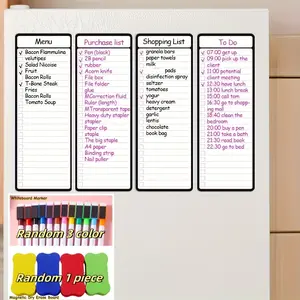 Menu
✓ Bacon Flammulina
velutipes
✓ Salad Nicoise
✓ Fruit
Bacon Rolls
✓ T-Bone Steak
Fries
Bacon Rolls
Tomato Soup
Purchase list
✓ Pen (black)
✓ 2B pencil
✓ rubber
✓ Acorn knife
File box
File folder
glue
MCorrection fluid
Ruler (length)
MTransparent tape
Heavy duty stapler
stapler
Paper clip
staple
The big staple
A4 paper
Binding strip
Nail puller
Shopping List
✓ granola bars
paper towels
milk
✓ pads
disinfection spray
seltzer
tomatoes
✓ yogur
heavy cream
detergent
garlic
lentis
chocolate
book bag
To Do
✓ 07:00 get up
✓ 09:00 pick up the
client
✓ 11:00 potential
client meeting
✓ 12:30 have lunch
✓ 13:00 lunch break
✓ 15:00 call tom
✓ 16:30 go to shopp-
ing mall
✓ 18:40 clean the
bedroom
✓ 20:00 buy a pen
✓ 21:00 take a bath
✓ 21:30 read book
✓ 22:30 go to bed
Whiteboard Marker
Random 3 color
Random 1 piece
Magnetic Dry Erase Board